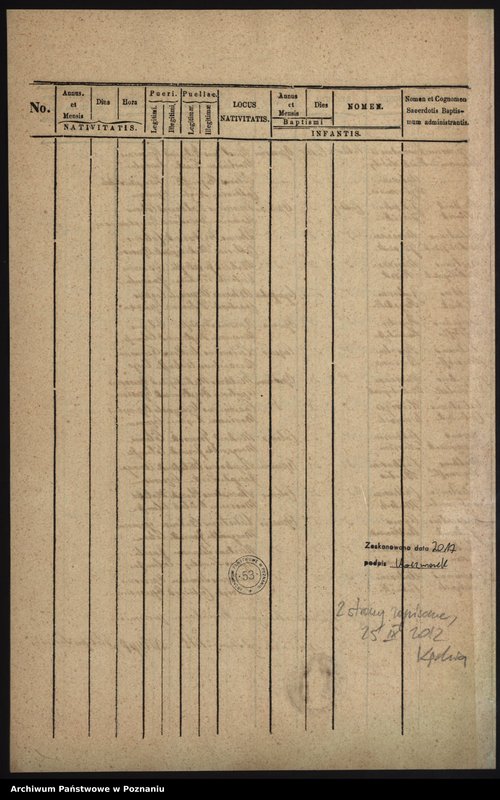 No.
Annus.
et
Mensis
Dies
Hora
NATIVITATIS.
Pueri.
Legitimi.
Illegitimi.
Puellae.
Legitimae
Illegitimae
LOCUS
NATIVITATIS.
Annus
et
Mensis
Dies
Baptismi
NOMEN.
INFANTIS.
Nomen et Cognomen
Sacerdotis Baptis-
mum administrantis.
Zeskanowano data 2017
podpis Kaczmarek
53
2 strony zapisane,
25 IX 2012
Archiwum Państwowe w Poznaniu